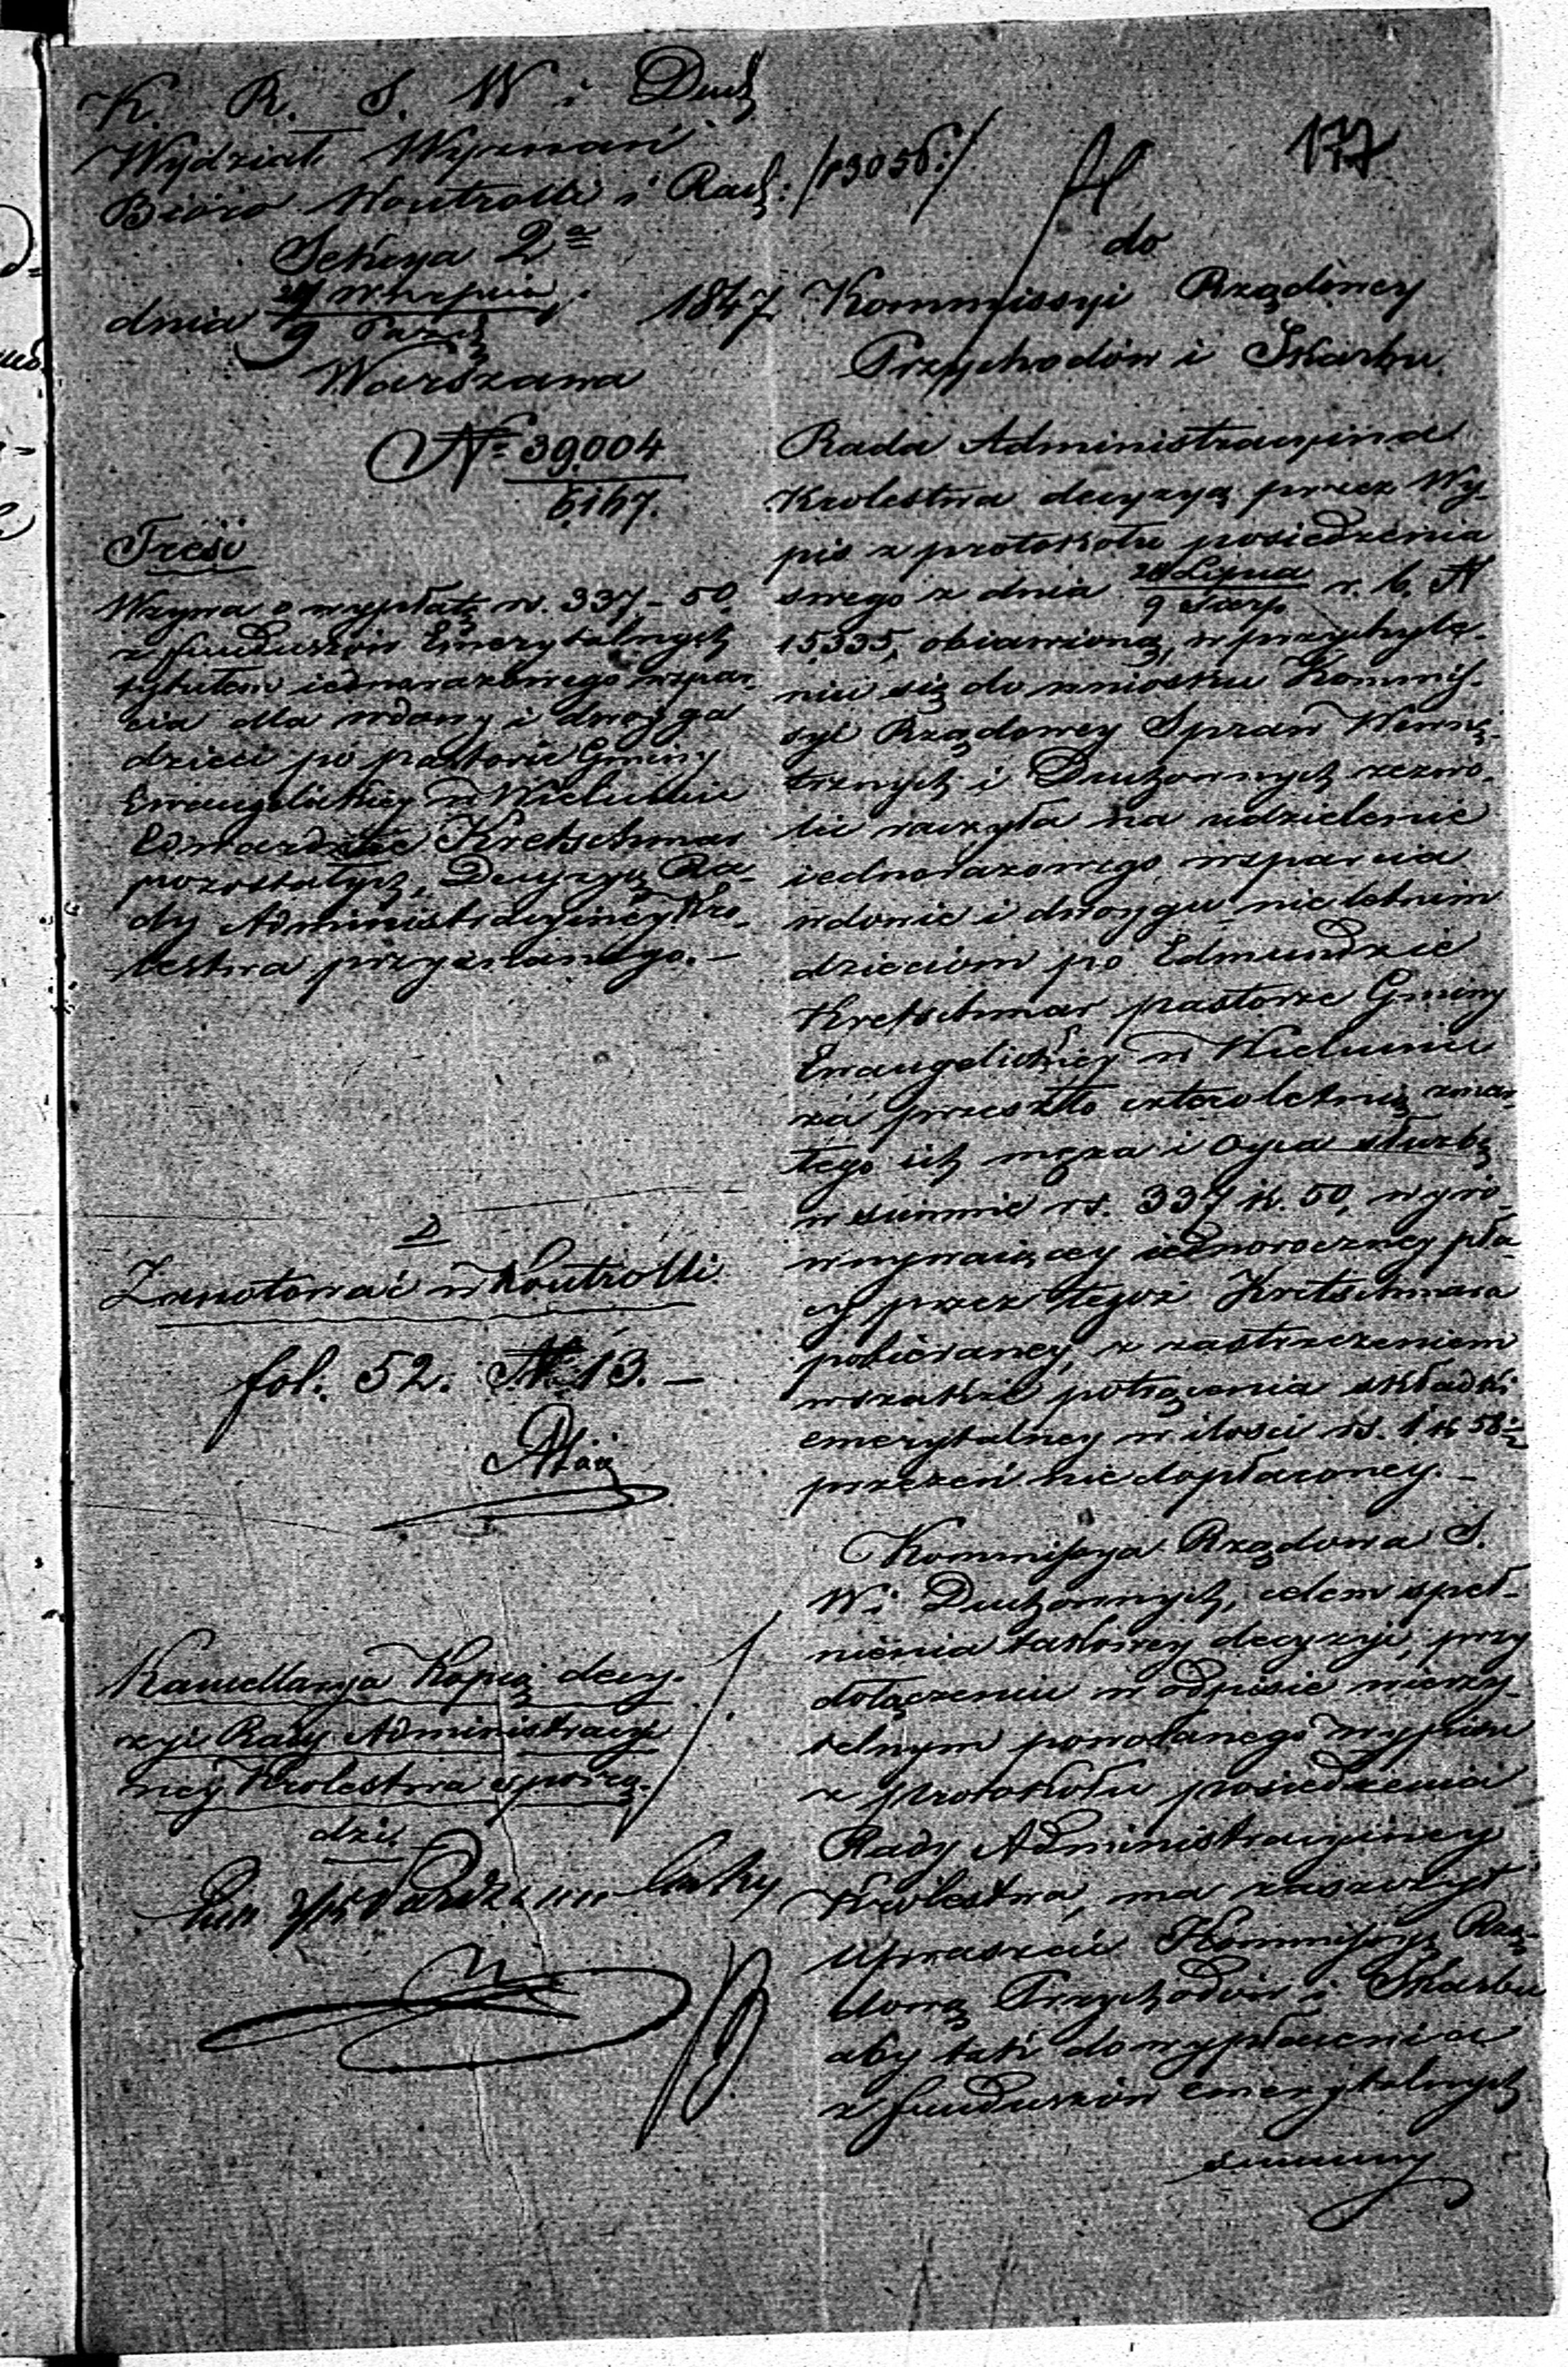 177
K. R. S. W i Duch
Wydział Wyznań
Bióro Kontrolli i Rach: /13056:/
Sekcya 2a
dnia 27 Września / 9 Paźdz 1847
Warszawa
No 39004 / 6167.
Treść
Wzywa o wypłatę rs. 337 - 50
z funduszów Emerytalnych
tytułem iednorazowego wspar-
cia dla wdowy i dwoyga
dzieci po pastorze Gminy
Ewangelickiey w Wieluniu
Kretschmar
pozostałych, Decyzyą Ra-
dy Administracyiney Kró-
lestwa przyznanego. -
Zanotować w Kontrolli
fol. 52. No 13. -
Kancellarya Kopią decy-
zyi Rady Administracyi
ney Królestwa sporzą-
dzi.
do
Kommissyi Rządowey
Przychodów i Skarbu
Rada Administracyina
Krolestwa decyzyą przez Wy-
pis z protokołu posiedzenia
swego z dnia 28 Lipca / 9 Sierp r. b. N
15335, obiawioną, w przychyle-
niu się do wniosku Kommis-
syi Rządowey Spraw Wewnę-
trznych i Duchownych zezwo-
lić raczyła na udzielenie
iednorazowego wsparcia
wdowie i dwoygu nieletnim
dzieciom po Edmundzie
Kretschmar pastorze Gminy
Ewangelickiey w Wieluniu
za przeszło czteroletnią zmar-
łego ich męża i Oyca służbę
w summie rs. 337 k. 50, wyró-
wnywaiącey iednoroczney pła-
cy przez tegoż Kretschmara
pobieraney, z zastrzeżeniem
wszakże potrącenia składki
emerytalney w ilości rs. 1 k 58½
przezeń niedopłaconey. -
Kommissya Rządowa S.
W i Duchownych, celem speł-
nienia takowey decyzyi, przy
dołączeniu w odpisie wierzy-
telnym powołanego wypisu
z protokołu posiedzenia
Rady Administracyiney
Królestwa, ma zaszczyt
upraszać Kommissyą Rzą-
dową Przychodów i Skarbu
aby do wypłacenia
z funduszów emerytalnych
summy